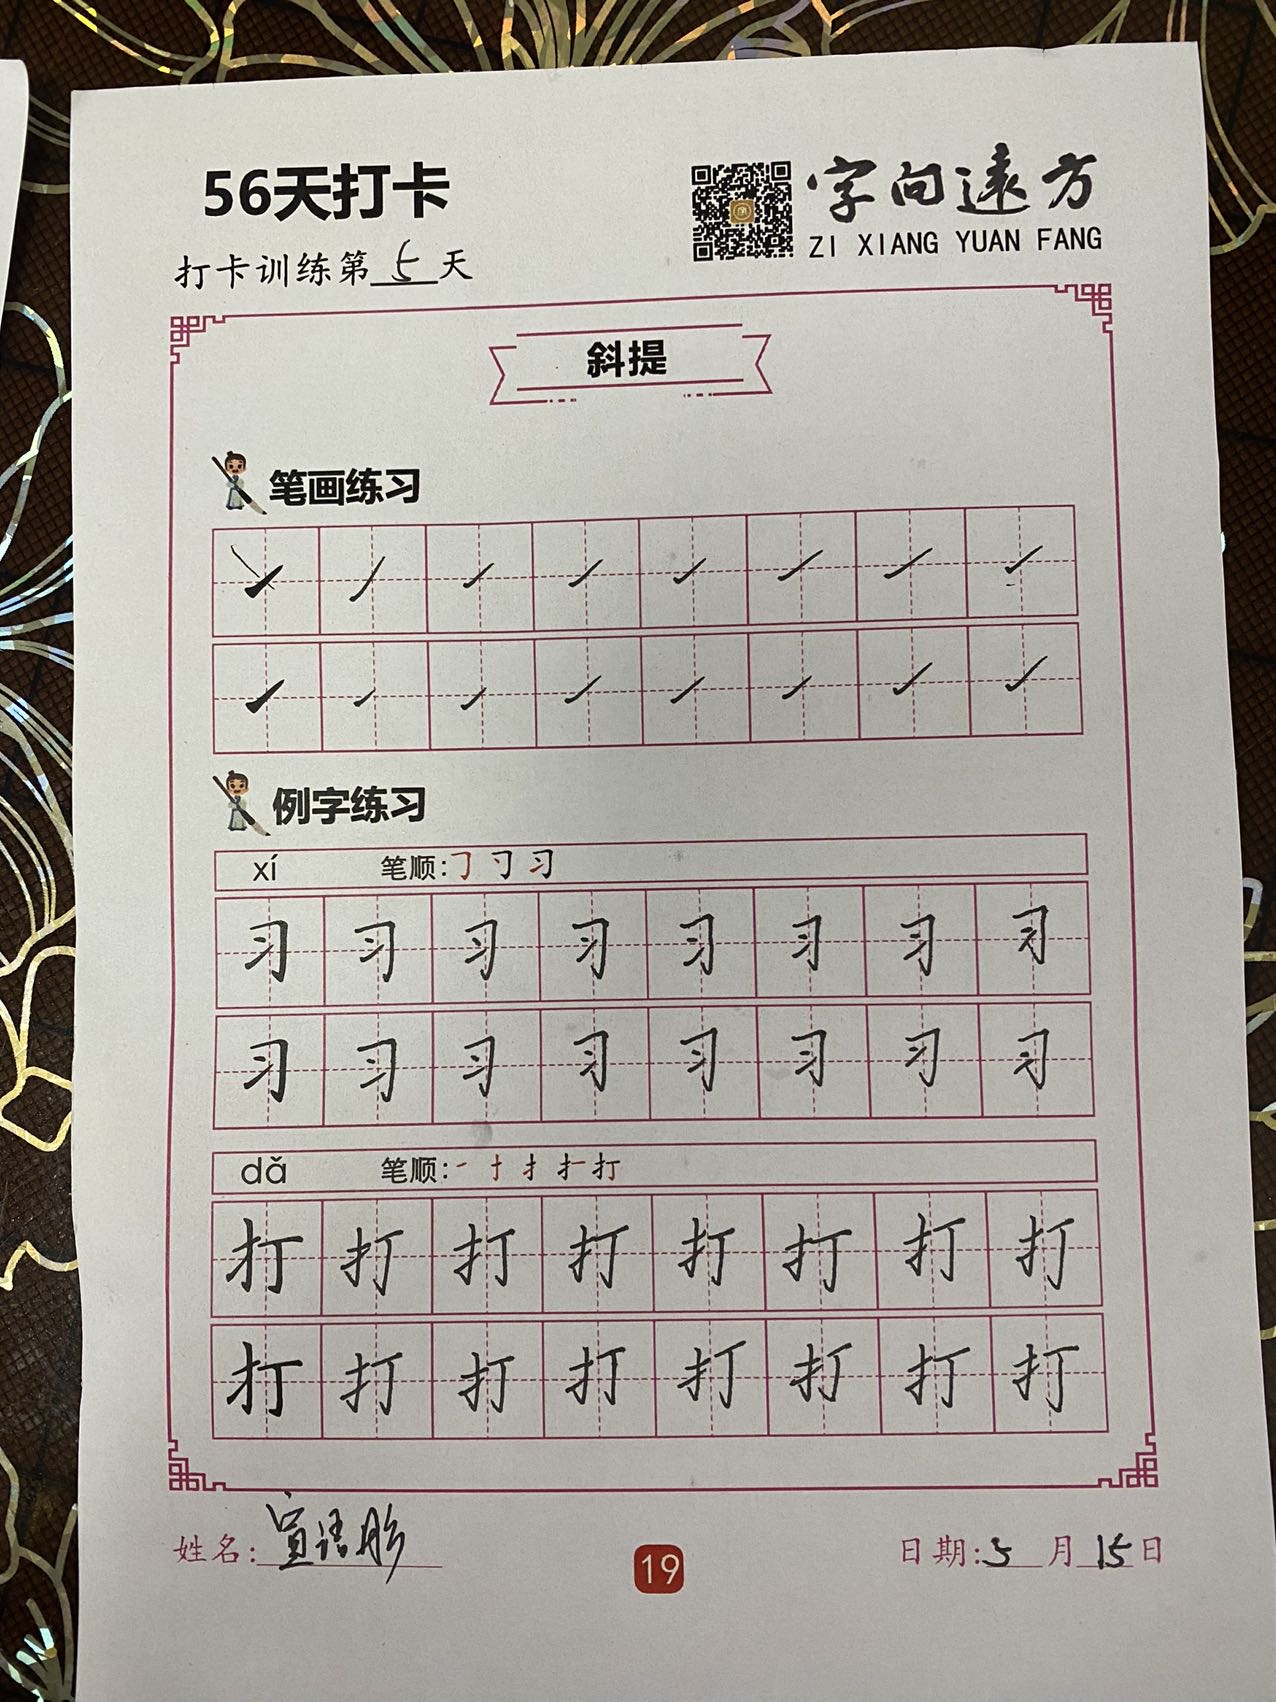 56天打卡
字向遠方
ZI XIANG YUAN FANG
打卡训练第5天
斜提
笔画练习
例字练习
xí 笔顺:
习 习 习 习 习 习 习 习
习 习 习 习 习 习 习 习
dǎ 笔顺:
打 打 打 打 打 打 打 打
打 打 打 打 打 打 打 打
姓名:宣语彤 日期:5月15日
19